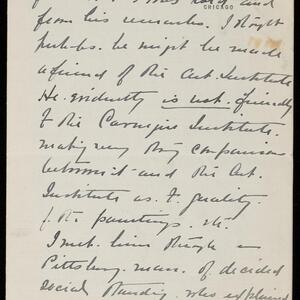 and
CHICAGO
from his remarks. I thought
perhaps he might be made
a friend of the Art Institute
He evidently is not friendly
to the Carnegie Institute.
making very strong comparison
between it and the Art
Institute as to quality
of the paintings. etc.
I met him through a
Pittsburg man of decided
social standing who explained